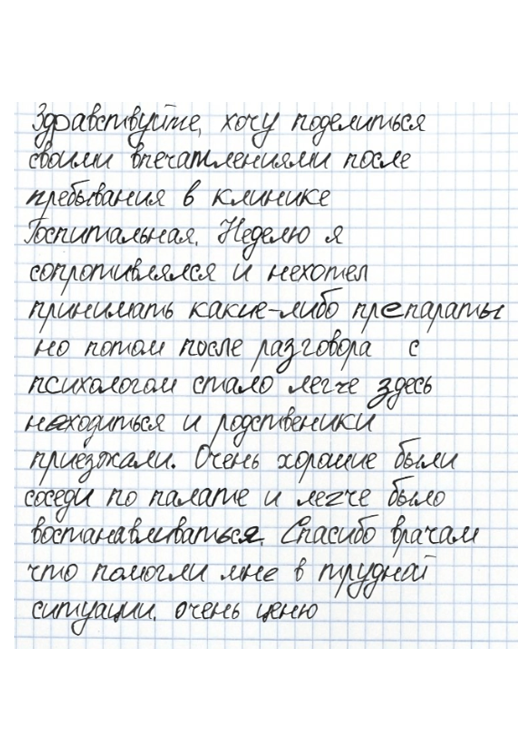 Здравствуйте, хочу поделиться
своими впечатлениями после
пребывания в клинике
Госпитальная. Неделю я
сопротивлялся и нехотел
принимать какие-либо препараты
но потом после разговора с
психологом стало легче здесь
находиться и родственики
приезжали. Очень хорошие были
соседи по палате и легче было
востанавливаться. Спасибо врачам
что помогли мне в трудной
ситуации. очень ценю